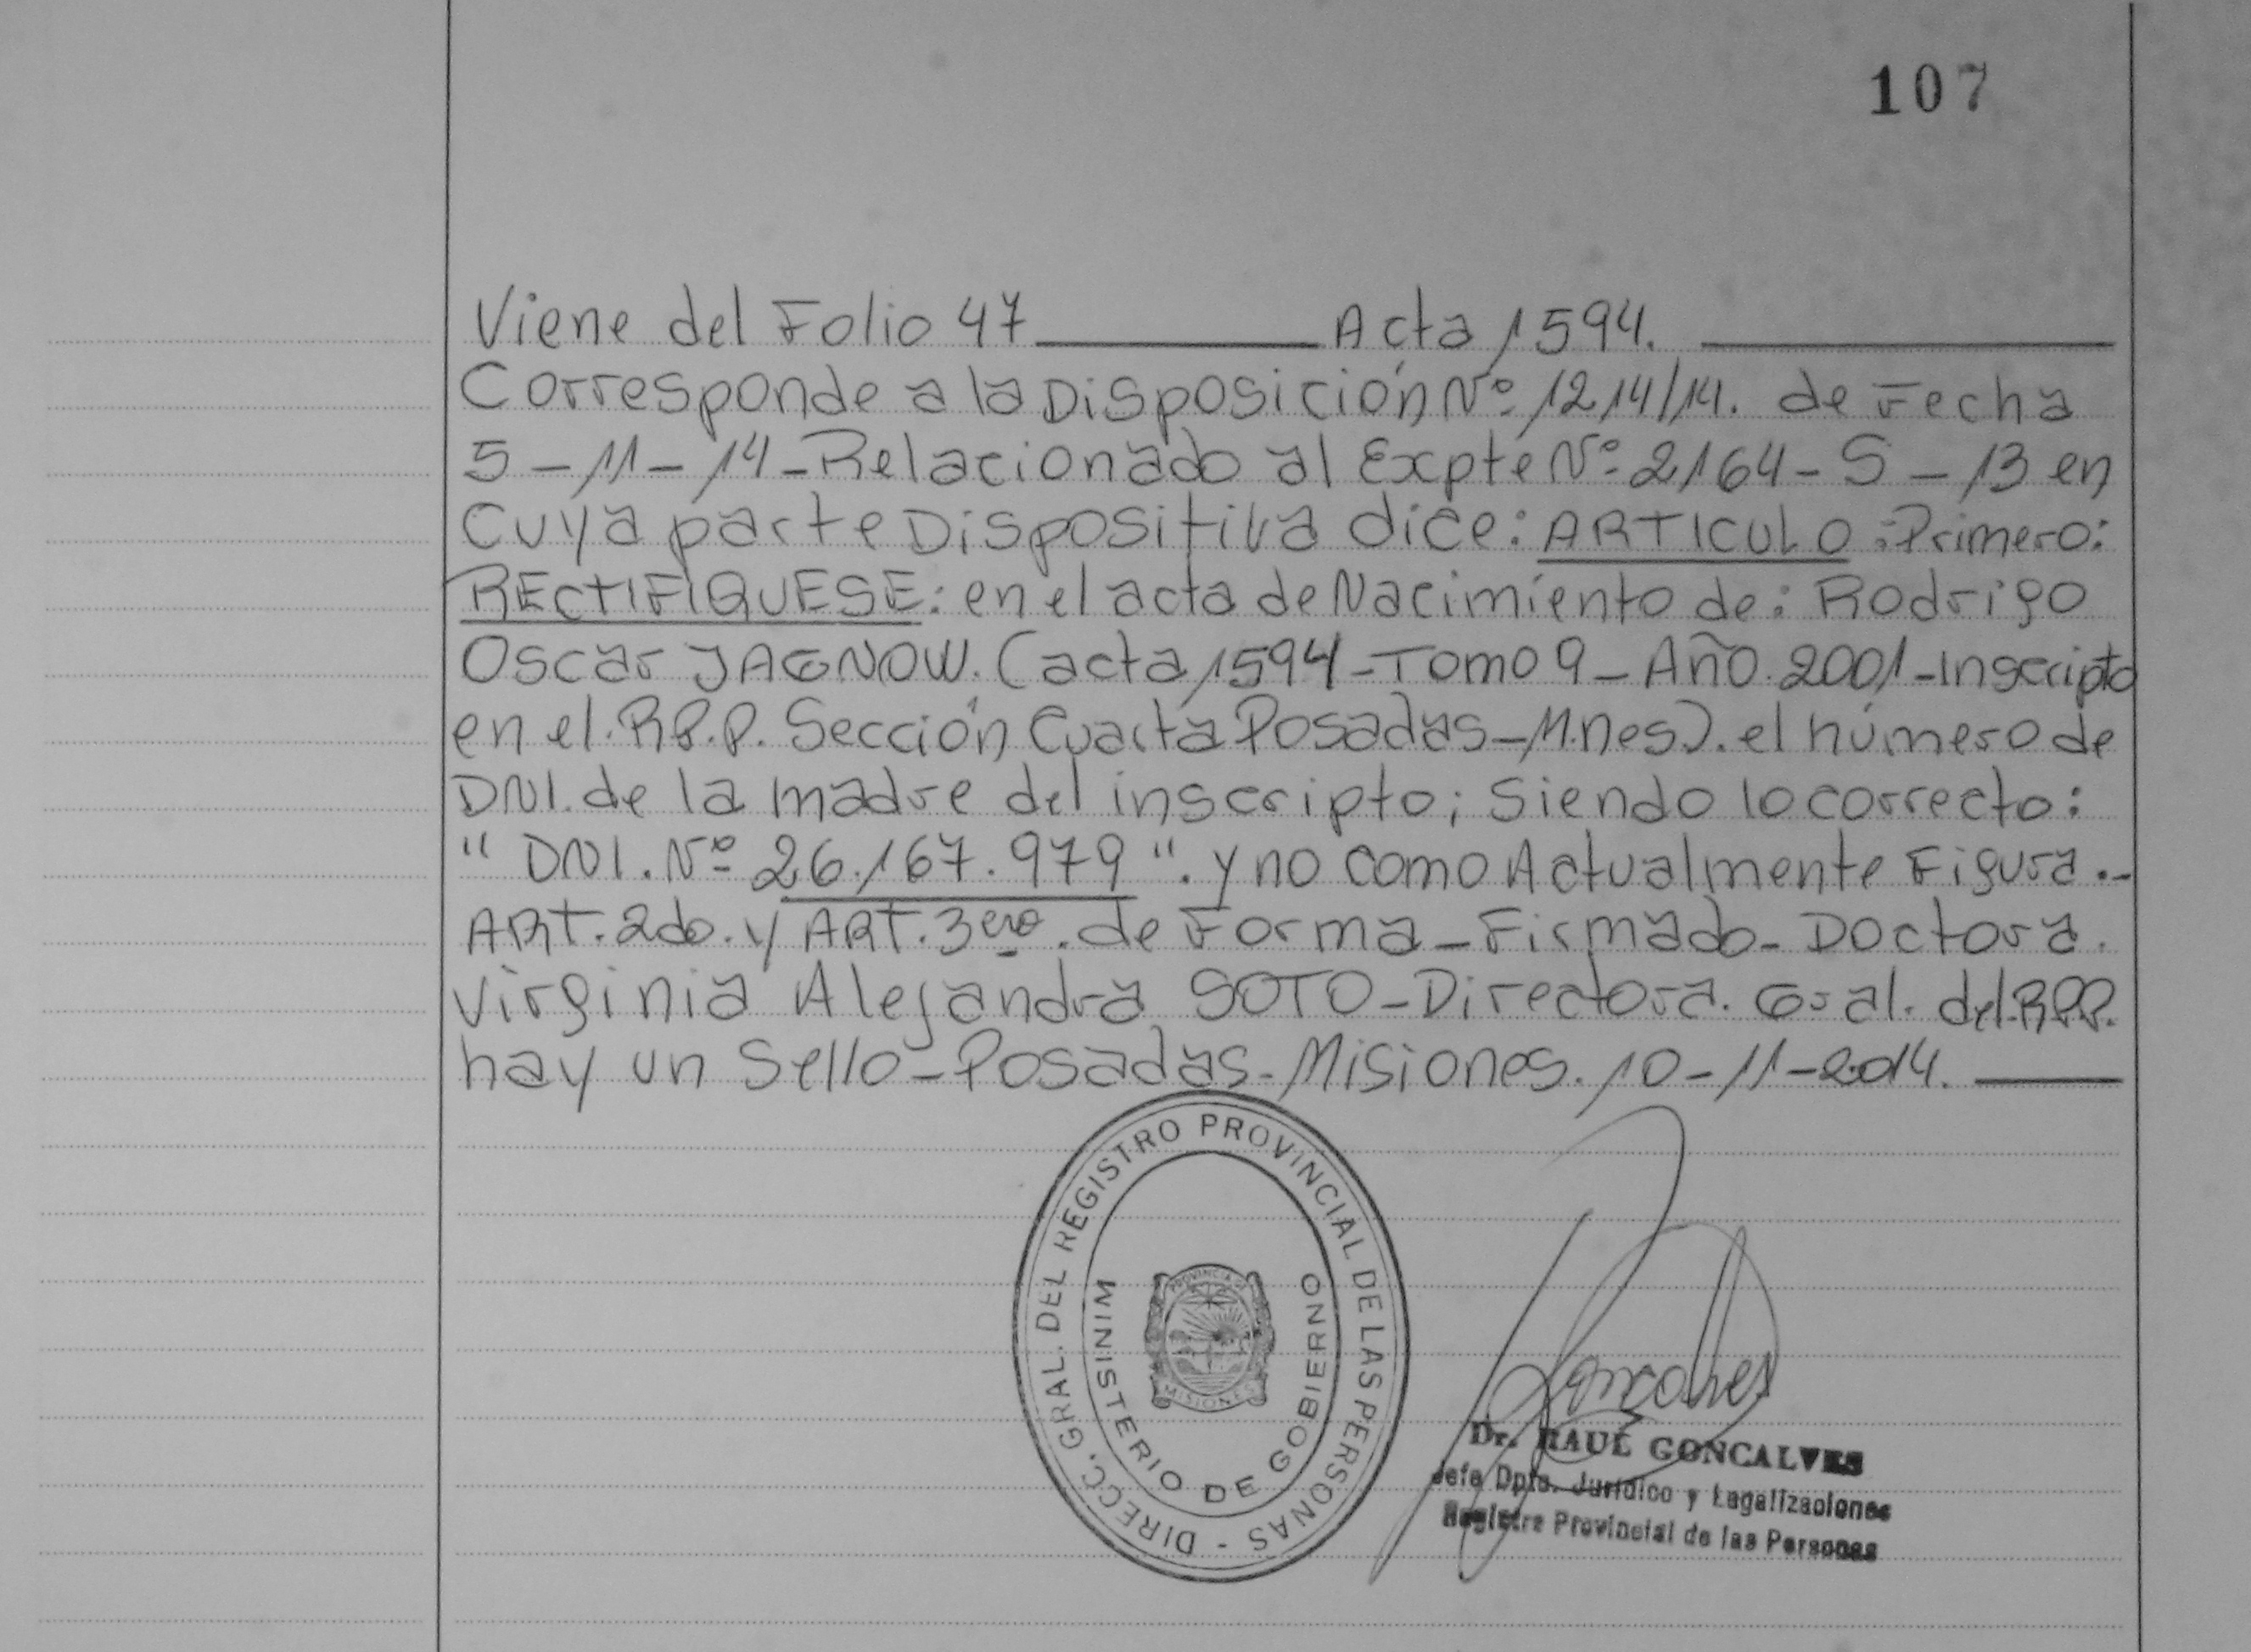 107
Viene del Folio 47 Acta 1594.
Corresponde a la Disposición Nº 1214/14. de Fecha
5-11-14-Relacionado al Expte Nº 2164-S-13 en
Cuya parte Dispositiva dice: ARTICULO: Primero:
RECTIFIQUESE: en el acta de Nacimiento de: Rodrigo
Oscar JAGNOW. (acta 1594-Tomo 9-Año.2001-Inscripto
en el.R.P.P. Sección Cuarta Posadas-M.nes). el número de
DNI. de la madre del inscripto; Siendo lo correcto:
" DNI. Nº 26.167.979 ". y no como Actualmente Figura.-
ART. 2do. y ART. 3ero. de Forma-Firmado-Doctora.
Virginia Alejandra SOTO-Directora. Gral. del.R.P.P.
hay un Sello-Posadas-Misiones. 10-11-2014.
DIRECC. GRAL. DEL REGISTRO PROVINCIAL DE LAS PERSONAS -
MINISTERIO DE GOBIERNO
PROVINCIA DE
MISIONES
Goncalves
Dr. RAUL GONCALVES
Jefe Dpto. Jurídico y Legalizaciones
Registro Provincial de las Personas